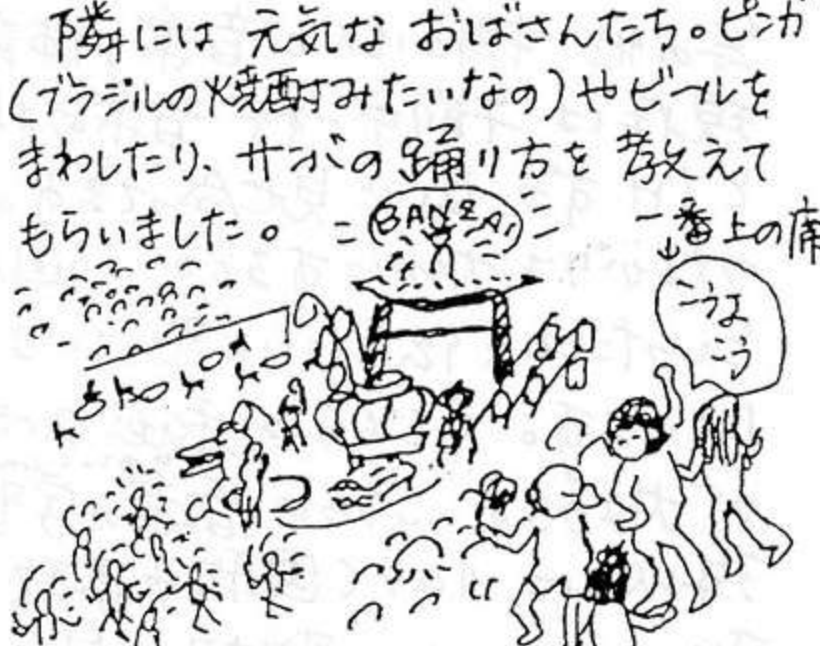 隣には 元気な おばさんたち。ピンガ
(ブラジルの焼酎みたいなの)やビールを
まわしたり、サンバの踊り方を 教えて
もらいました。
BANZAI
一番上の席
↓
こうよ
こう